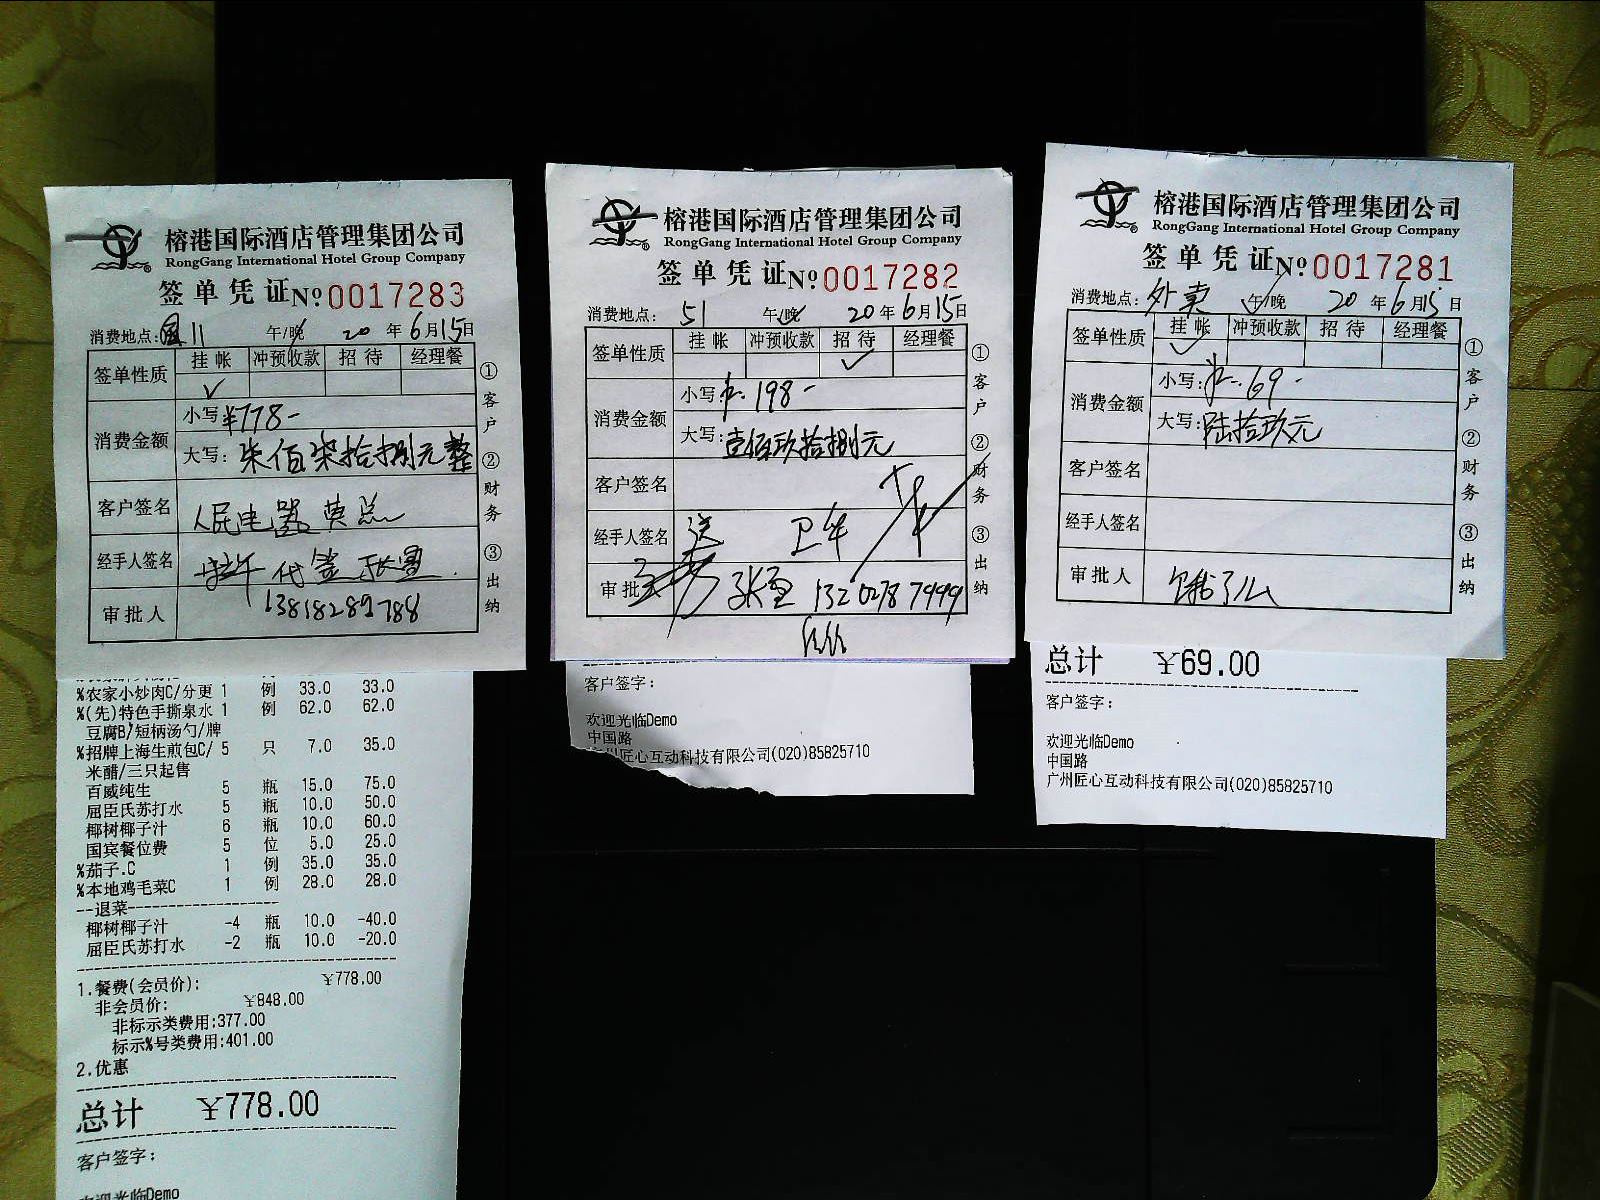 榕港国际酒店管理集团公司
RongGang International Hotel Group Company
签单凭证 No 0017283
消费地点: 11 午/晚 20 年 6 月 15 日
签单性质 挂帐 冲预收款 招待 经理餐
✓
消费金额 小写: ¥778-
大写: 柒佰柒拾捌元整
客户签名 人民电器 黄总
经手人签名 代签 张雪
审批人 13818289788
① 客户 ② 财务 ③ 出纳
%农家小炒肉C/分更 1 例 33.0 33.0
%(先)特色手撕泉水 1 例 62.0 62.0
豆腐B/短柄汤勺/牌
%招牌上海生煎包C/ 5 只 7.0 35.0
米醋/三只起售
百威纯生 5 瓶 15.0 75.0
屈臣氏苏打水 5 瓶 10.0 50.0
椰树椰子汁 6 瓶 10.0 60.0
国宾餐位费 5 位 5.0 25.0
%茄子.C 1 例 35.0 35.0
%本地鸡毛菜C 1 例 28.0 28.0
--退菜--------------------
椰树椰子汁 -4 瓶 10.0 -40.0
屈臣氏苏打水 -2 瓶 10.0 -20.0
1.餐费(会员价): ¥778.00
非会员价: ¥848.00
非标示类费用:377.00
标示%号类费用:401.00
2.优惠
总计 ¥778.00
客户签字:
欢迎光临Demo
榕港国际酒店管理集团公司
RongGang International Hotel Group Company
签单凭证 No 0017282
消费地点: 51 午/晚 20 年 6 月 15 日
签单性质 挂帐 冲预收款 招待 经理餐
✓
消费金额 小写: 198-
大写: 壹佰玖拾捌元
客户签名
经手人签名 送 卫生
审批 张雪
① 客户 ② 财务 ③ 出纳
客户签字:
欢迎光临Demo
中国路
匠心互动科技有限公司(020)85825710
榕港国际酒店管理集团公司
RongGang International Hotel Group Company
签单凭证 No 0017281
消费地点: 外卖 午/晚 20 年 6 月 15 日
签单性质 挂帐 冲预收款 招待 经理餐
✓
消费金额 小写: 69-
大写: 陆拾玖元
客户签名
经手人签名
审批人 饿了么
① 客户 ② 财务 ③ 出纳
总计 ¥69.00
客户签字:
欢迎光临Demo
中国路
广州匠心互动科技有限公司(020)85825710